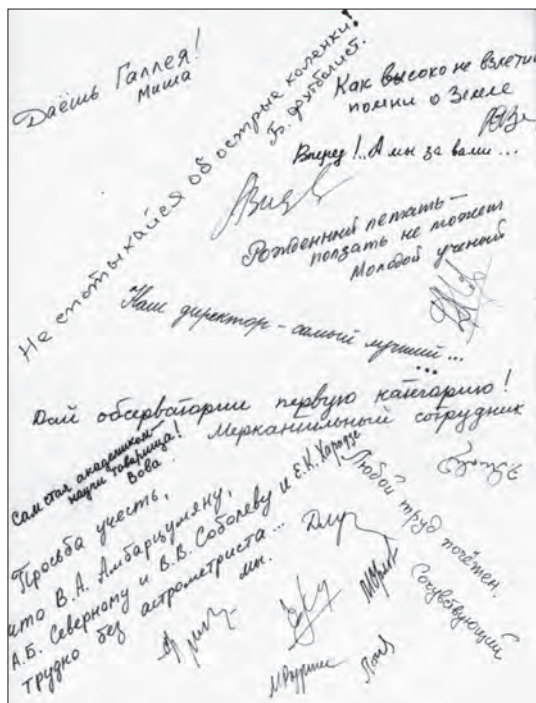 Даёшь Галлея!
Миша
Не спотыкайся об острые коленки!
Б. футболист.
Как высоко не взлети
помни о Земле
Вперед!.. А мы за вами...
Рожденный летать –
ползать не может
Молодой ученый
Наш директор – самый лучший...
Дай обсерватории первую категорию!
Меркантильный сотрудник
Сам стал академиком –
научи товарища!
Вова.
Просьба учесть,
что В.А. Амбарцумяну,
А.Б. Северному и В.В. Соболеву и Е.К. Харадзе
трудно без астрометриста...
мн.
Любой труд почётен.
Сочувствующий